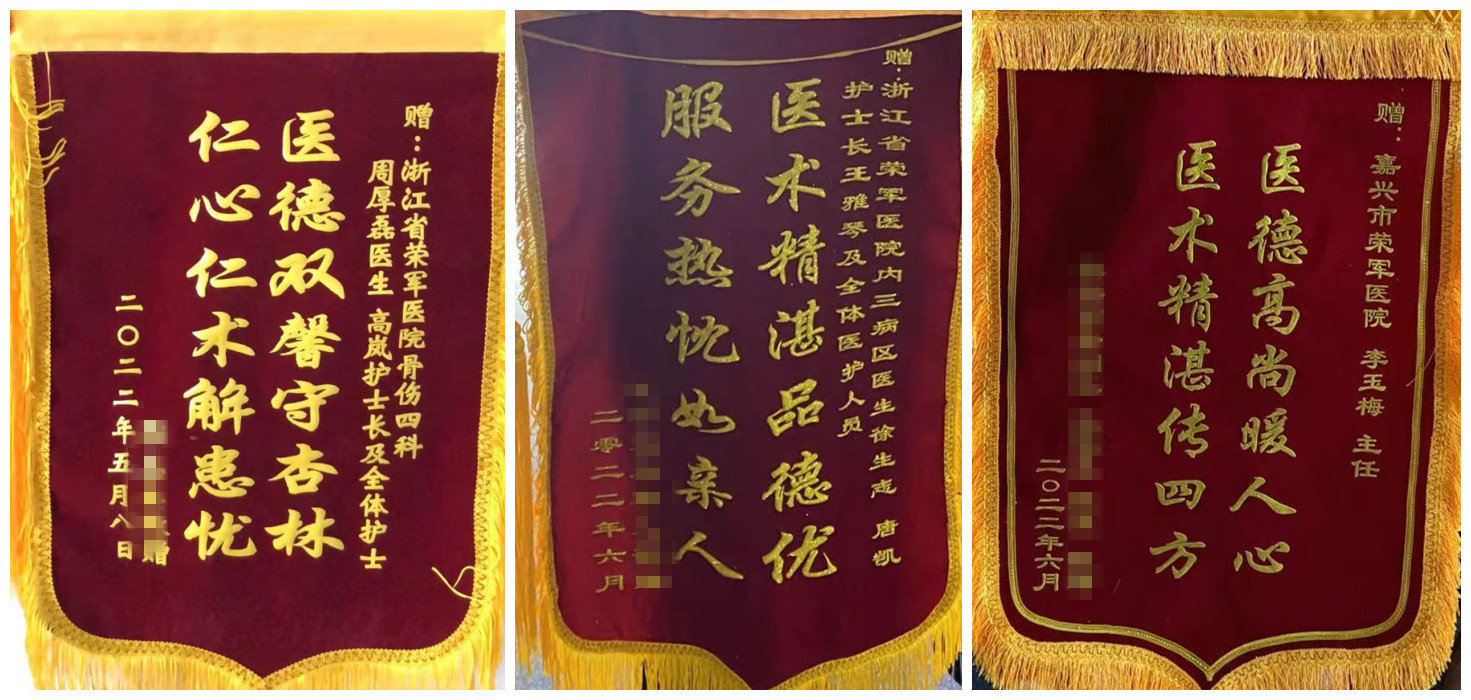 赠：浙江省荣军医院骨伤四科
周厚磊医生 高岚护士长及全体护士
医德双馨守杏林
仁心仁术解患忧
赠
二〇二二年五月八日
赠：浙江省荣军医院内三病区医生徐生志 唐凯
护士长王雅琴及全体医护人员
医术精湛品德优
服务热忱如亲人
二零二二年六月
赠：嘉兴市荣军医院 李玉梅 主任
医德高尚暖人心
医术精湛传四方
二〇二二年六月